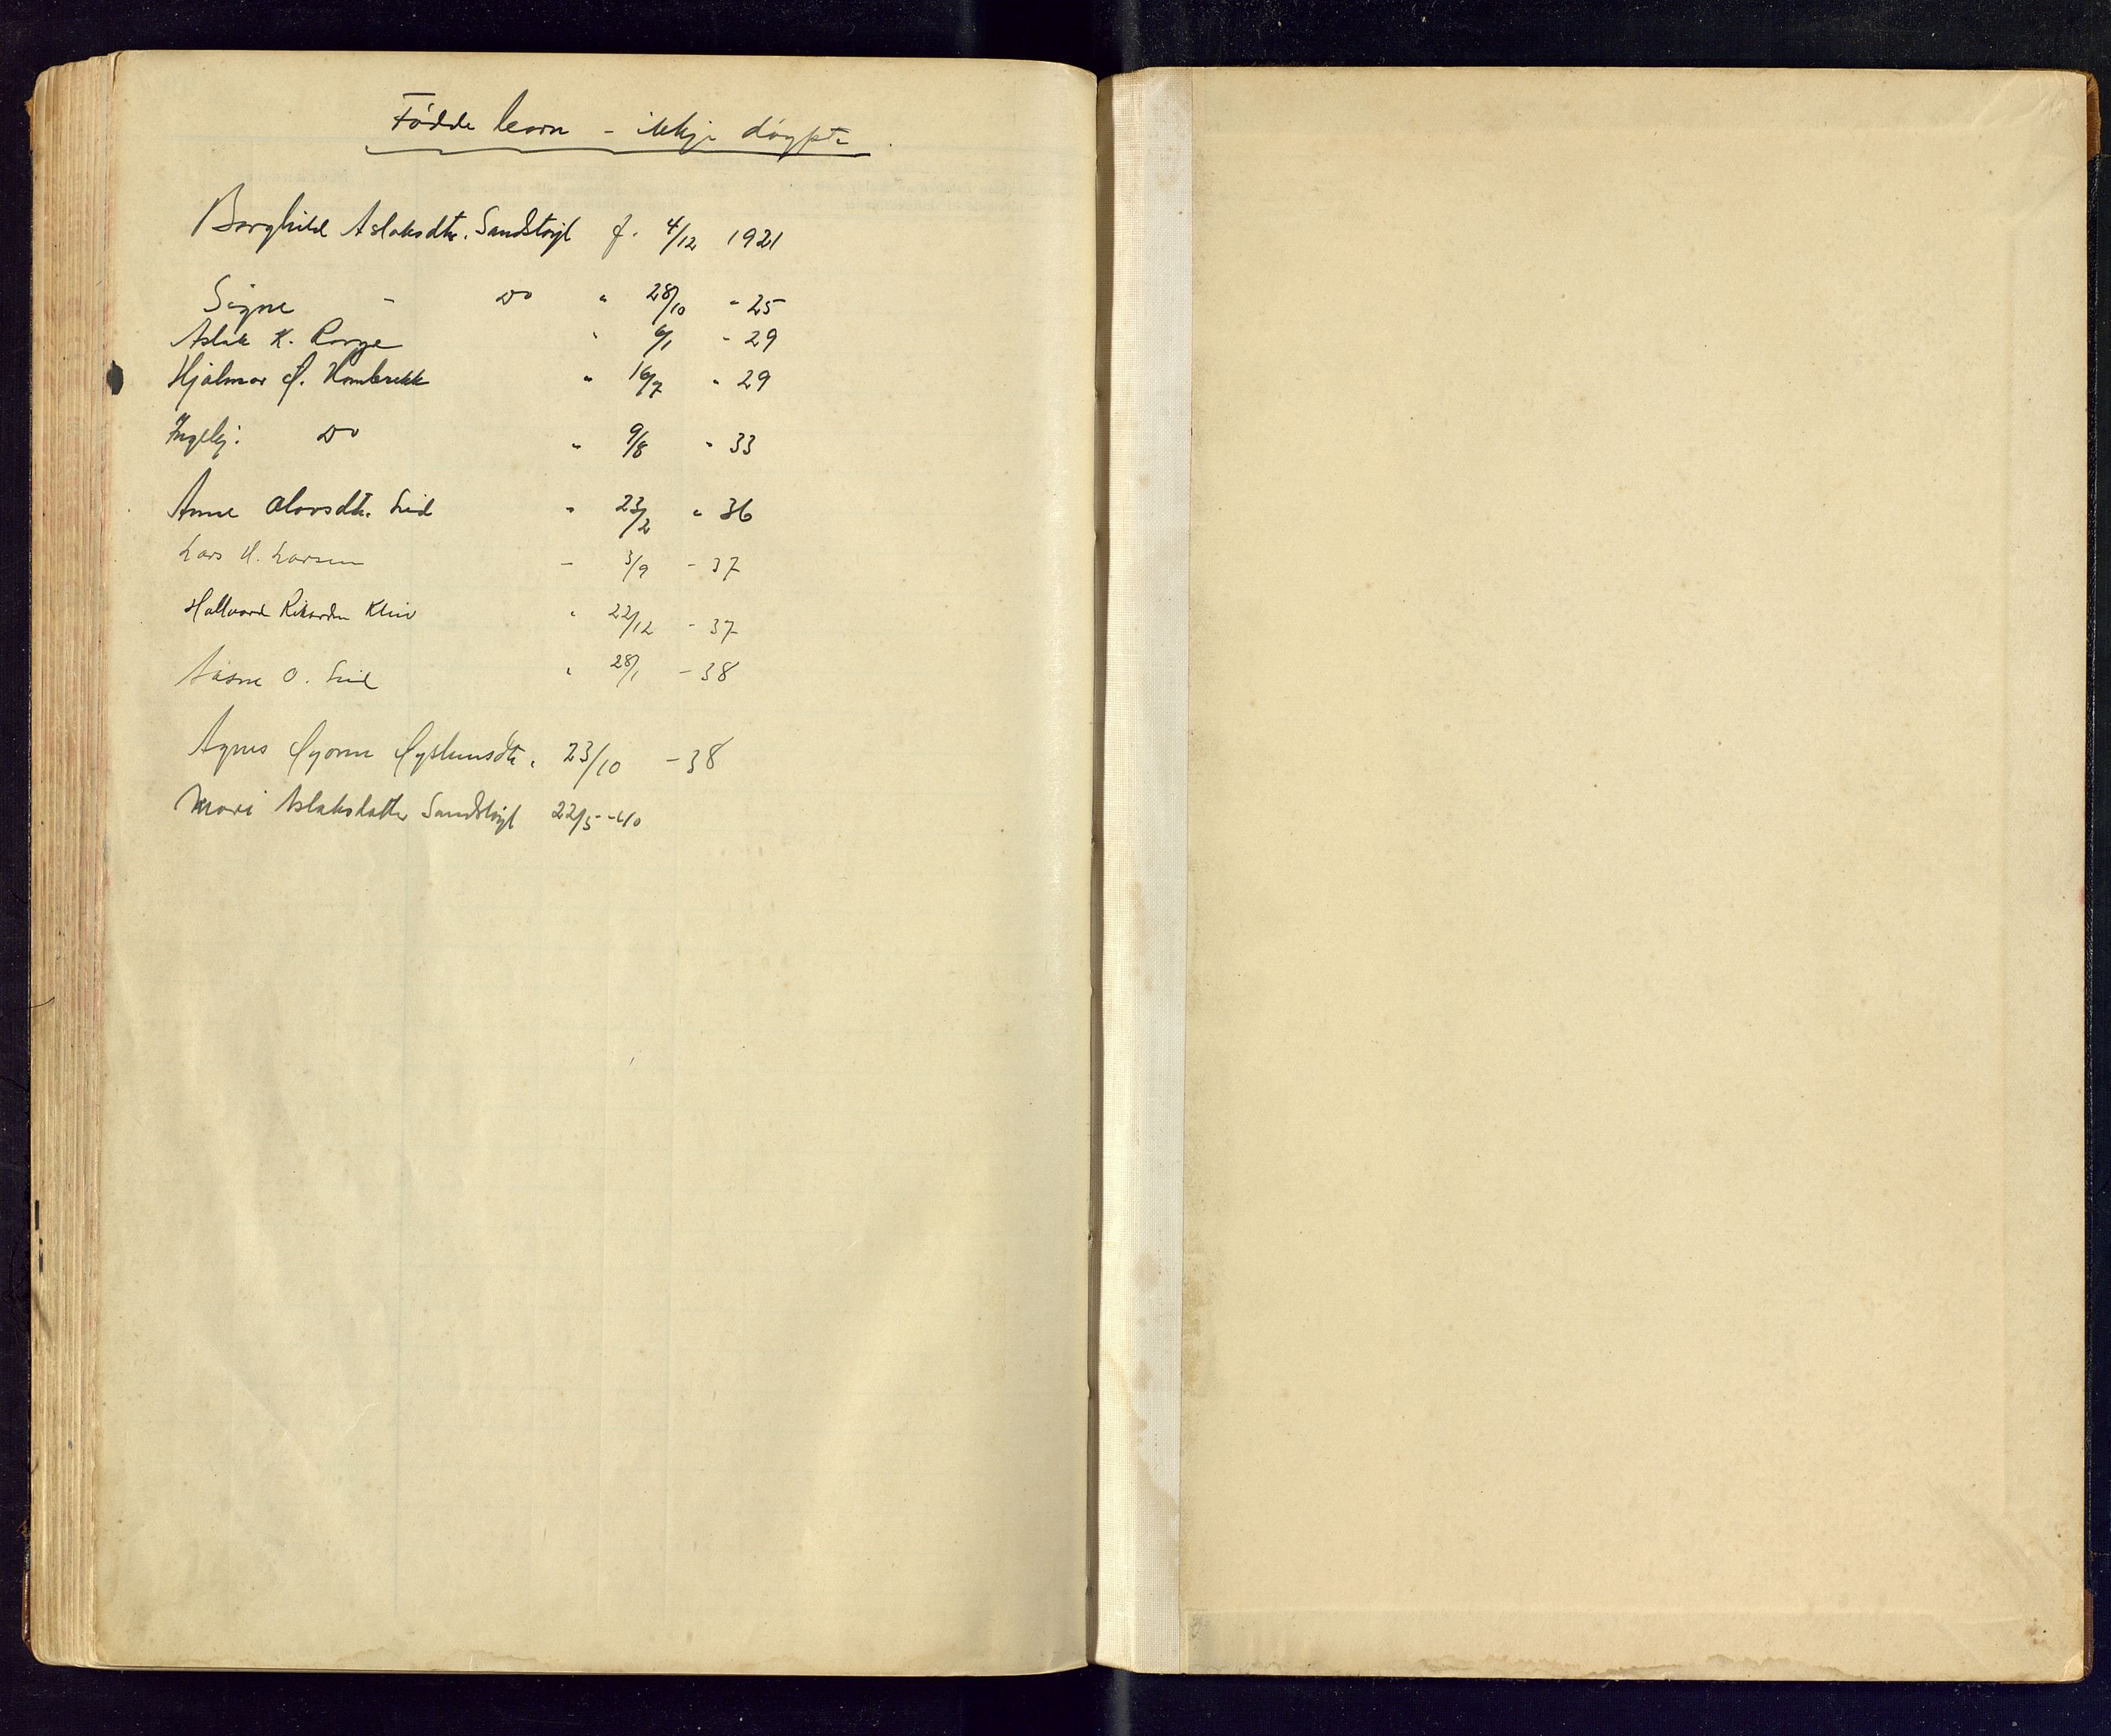 Fødde born - ikkje døypte
Borghild Aslaksdtr. Sandstøyl f. 4/12 1921
Signe - Do " 28/10 - 25
Aslak K. Rorge " 6/1 - 29
Hjalmar Ø. Hombrekk " 16/7 " 29
Ingebj. Do " 9/8 - 33
Anne Olavsdtr. Lid " 23/2 " 36
Lars H. Larsen - 3/9 - 37
Hallvard Rikardsn Kleiv " 22/12 - 37
Åasne O. Lid " 28/1 - 38
Agnes Gyslunsdtr. 23/10 - 38
Mari Aslaksdatter Sandstøyl 22/5 - 40